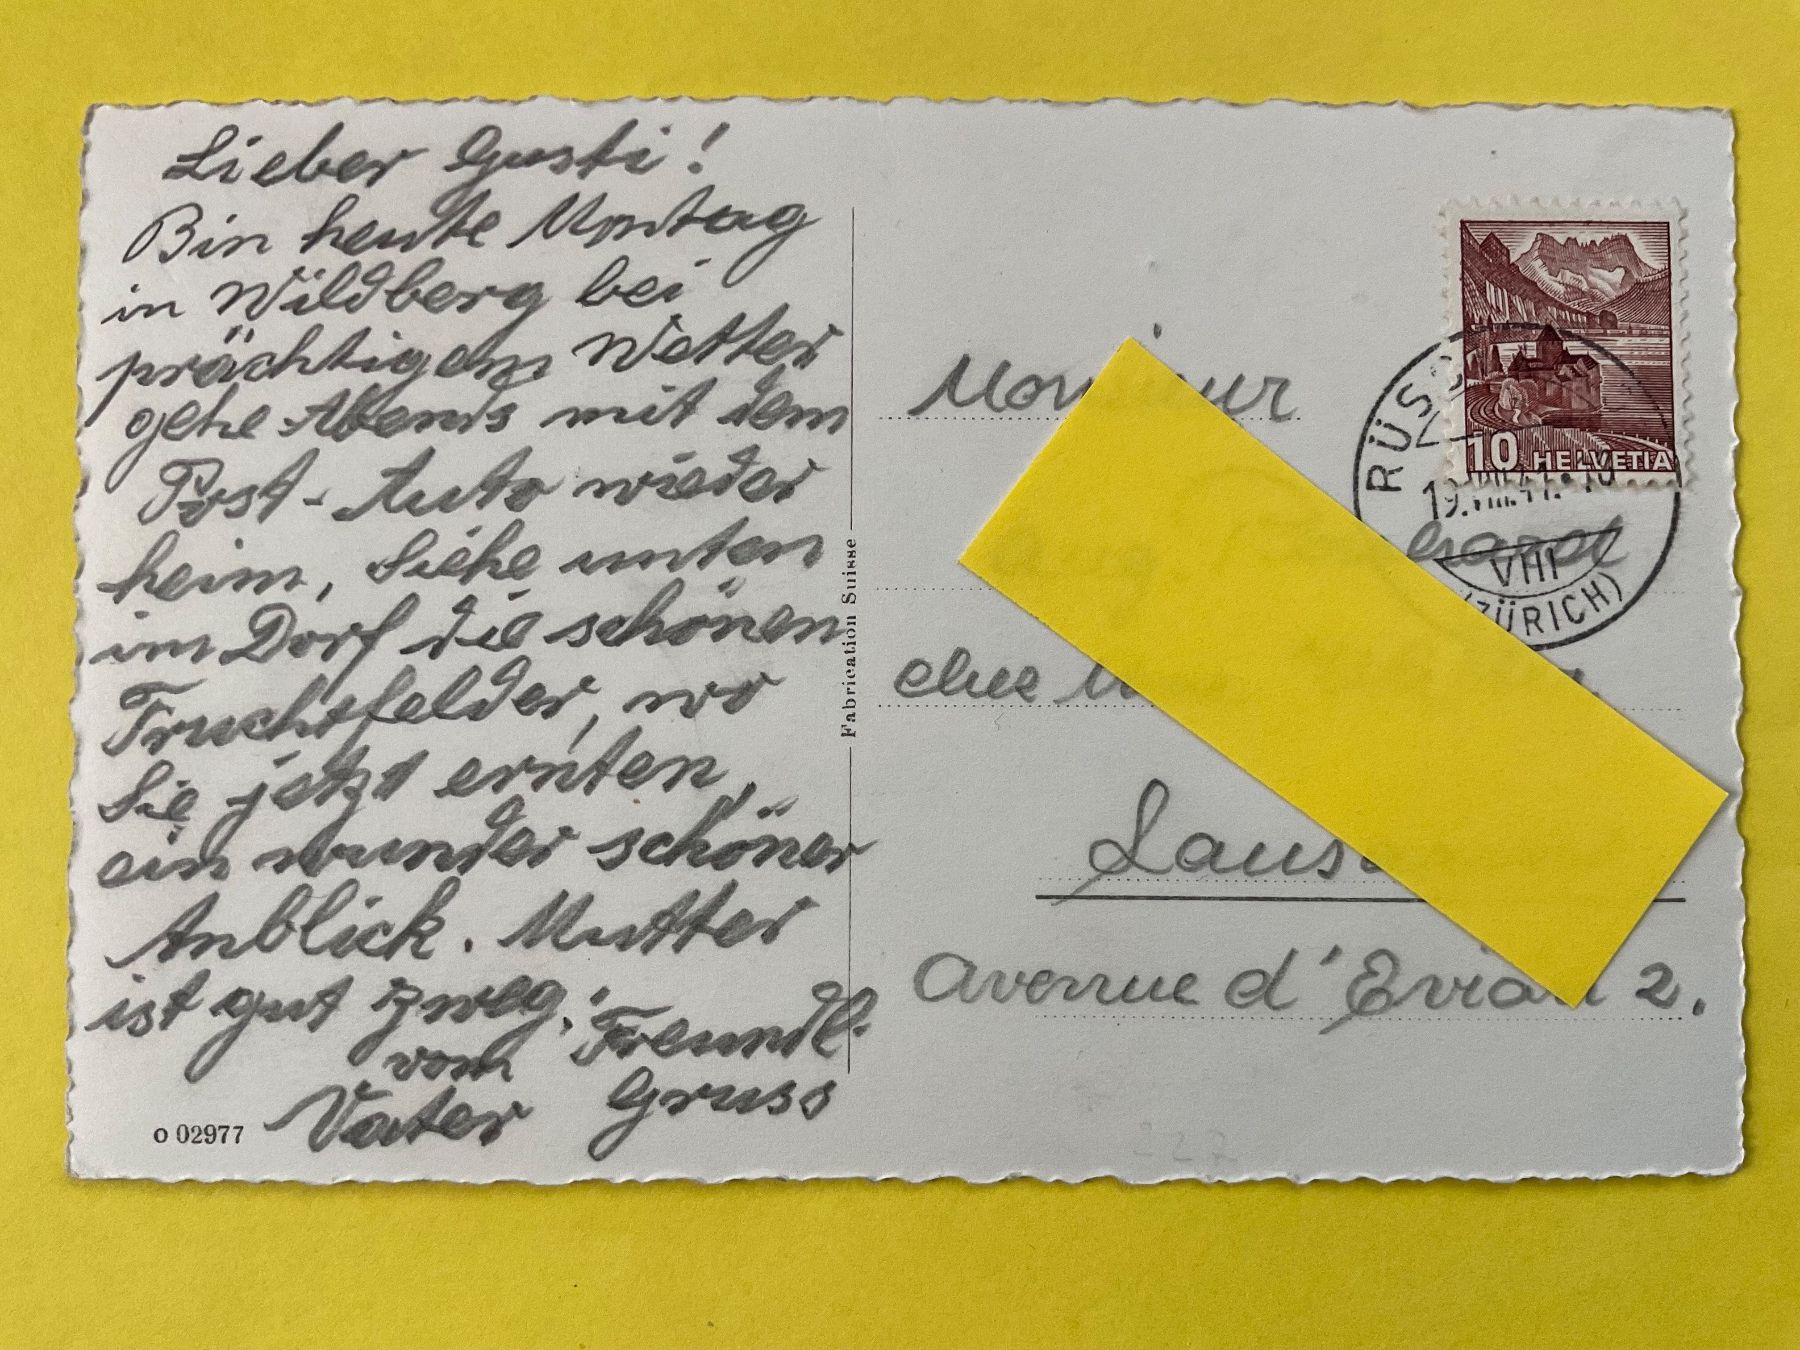 Lieber Gusti!
Bin heute Montag
in Wildberg bei
prächtigem Wetter
gehe Abends mit dem
Post-Auto wieder
heim, Siehe unten
im Dorf die schönen
Fruchtfelder, wo
Sie jetzt ernten,
ein wunder schöner
Anblick. Mutter
ist gut zweg.
Freundl.
vom Gruss
Vater
o 02977
Fabrication Suisse
10 HELVETIA
RÜS
19.VIII.41.
VIII
(ZÜRICH)
Monsieur
chez
Laus
Avenue d'Evian 2.